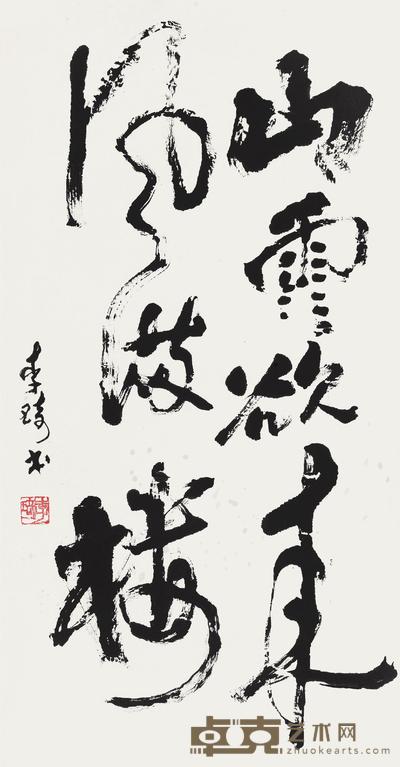 山雨欲来
风满楼
李琦书
卓克艺术网
zhuokearts.com